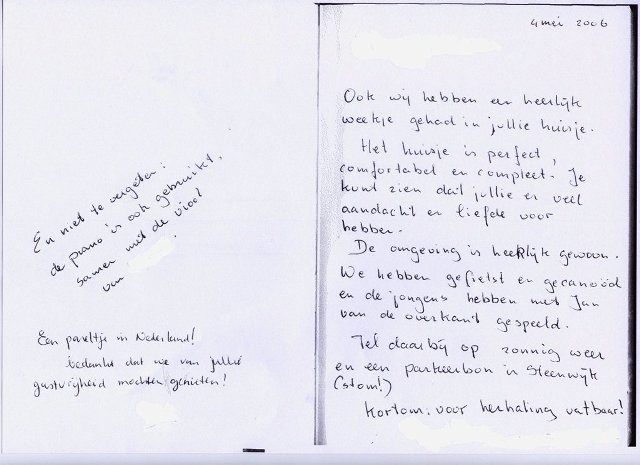 En niet te vergeten:
de piano is ook gebruikt,
samen met de viool
van
Een pareltje in Nederland!
bedankt dat we van jullie
gastvrijheid mochten genieten!
4 mei 2006
Ook wij hebben een heerlijk
weekje gehad in jullie huisje.
Het huisje is perfect,
comfortabel en compleet. Je
kunt zien dat jullie er veel
aandacht en liefde voor
hebben.
De omgeving is heerlijk gewoon.
We hebben gefietst en gecanoëd
en de jongens hebben met Jan
van de overkant gespeeld.
Tel daarbij op zonnig weer
en een parkeerbon in Steenwijk
(stom!)
Kortom: voor herhaling vatbaar!